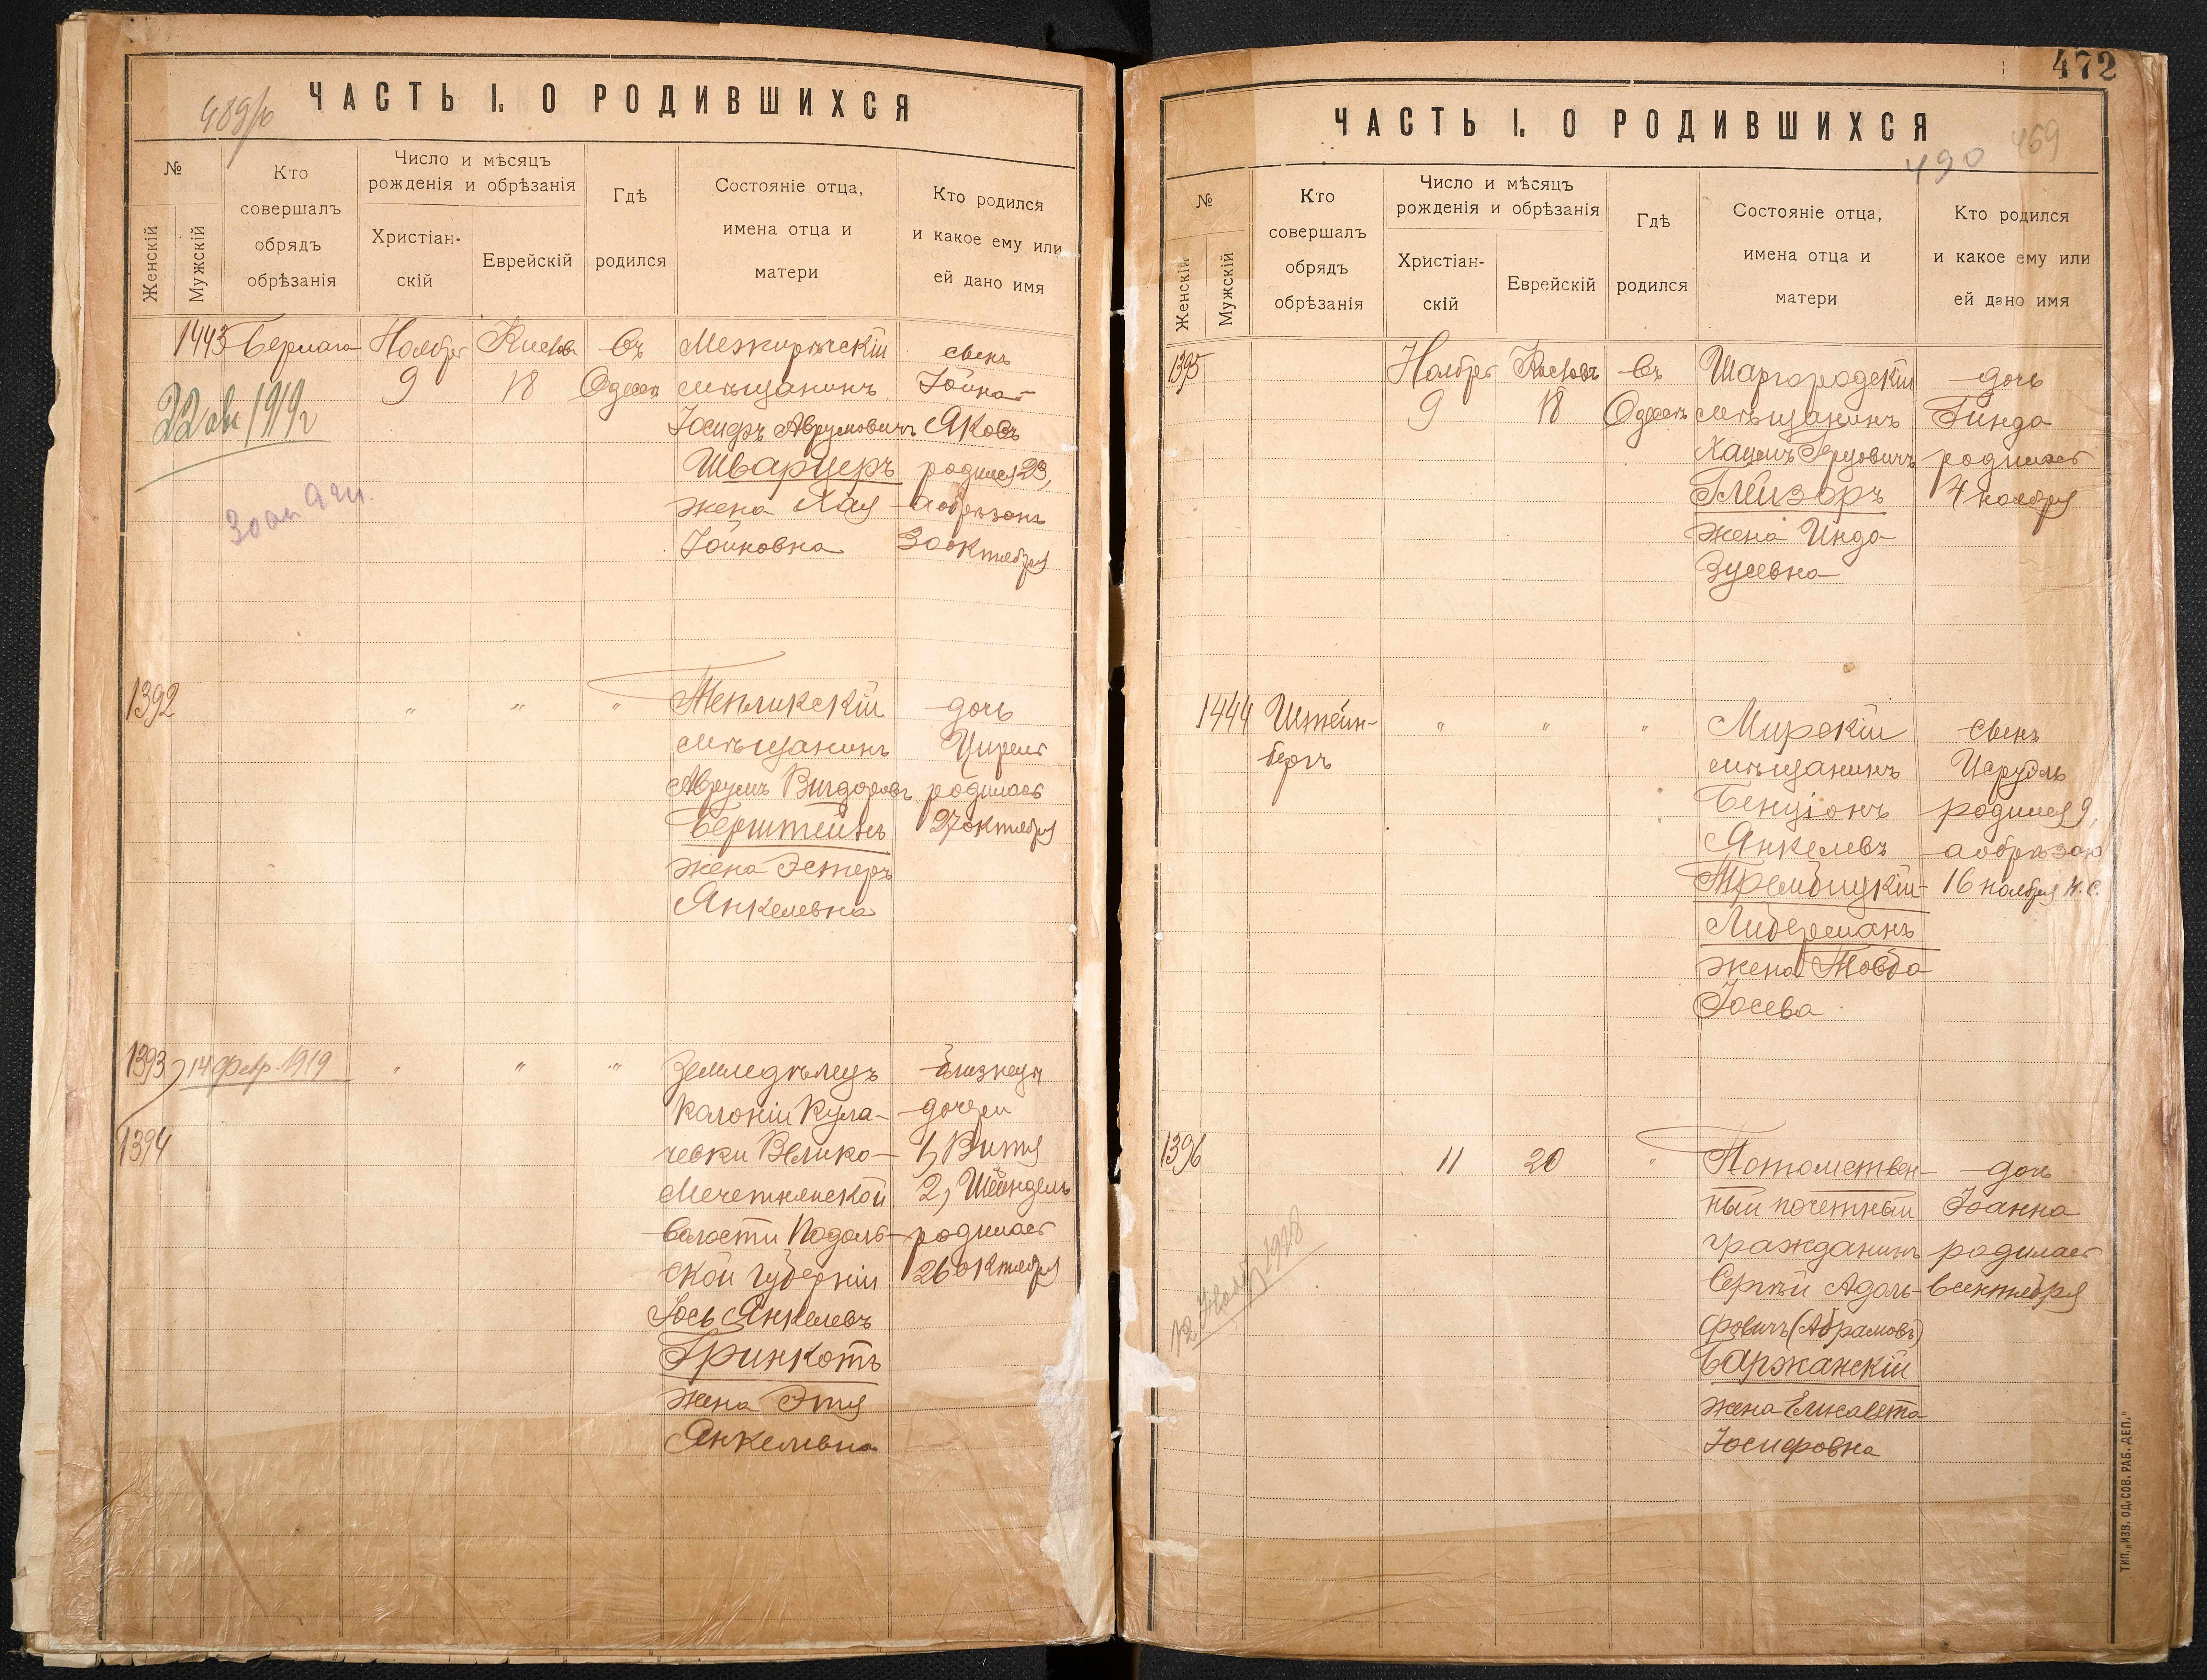 ЧАСТЬ I. О РОДИВШИХСЯ
№
Женскій
Мужскій
Кто
совершалъ
обрядъ
обрѣзанія
Число и мѣсяцъ
рожденія и обрѣзанія
Христіан-
скій
Еврейскій
Гдѣ
родился
Состояніе отца,
имена отца и
матери
Кто родился
и какое ему или
ей дано имя
1443
Ноября
9
Кислова
18
въ
Одессѣ
Межиричскій
мѣщанинъ
Іосифъ Аврумовичъ
Шварцеръ
жена Хая
Іойновна
сынъ
Іойна-
Яковъ
родился 23,
а обрѣзанъ
30 октября
22 авг 1919 г
1392
" " "
Тепликскій
мѣщанинъ
Аврумъ Вигдоровъ
Берштейнъ
жена Эстеръ
Янкелевна
дочь
Цирля
родилась
27 октября
1393
14 февр. 1919
1394
" " "
Земледѣлецъ
колоніи Кула-
чевки Велико-
Мечетнянской
волости Подоль-
ской губерніи
Іось Янкелевъ
Гринкотъ
жена Этя
Янкелевна
близнецы
дочери
1, Витя
2, Шейндель
родилась
26 октября
472
ЧАСТЬ I. О РОДИВШИХСЯ
490
469
№
Женскій
Мужскій
Кто
совершалъ
обрядъ
обрѣзанія
Число и мѣсяцъ
рожденія и обрѣзанія
Христіан-
скій
Еврейскій
Гдѣ
родился
Состояніе отца,
имена отца и
матери
Кто родился
и какое ему или
ей дано имя
1395
Ноября
9
Кисловъ
18
въ
Одессѣ
Шаргородскій
мѣщанинъ
Глейзоръ
жена Инда
Зусевна
дочь
Гинда
родилась
4 ноября
1444
Штейн-
бергъ
" " "
Мирскій
мѣщанинъ
Бенціонъ
Янкелевъ
Трембицкій-
Либерманъ
жена Товба
Іосева
сынъ
Исруэль
родился 9,
а обрѣзанъ
16 ноября н. с.
1396
11
20
"
Потомствен-
ный почетный
гражданинъ
Сергѣй Адоль-
фовичъ (Абрамовъ)
Баржанскій
жена Елисавета
Іосифовна
дочь
Іоанна
родилась
12 Нояб. 1918
ТИП. „ИЗВ. ОД. СОВ. РАБ. ДЕП."